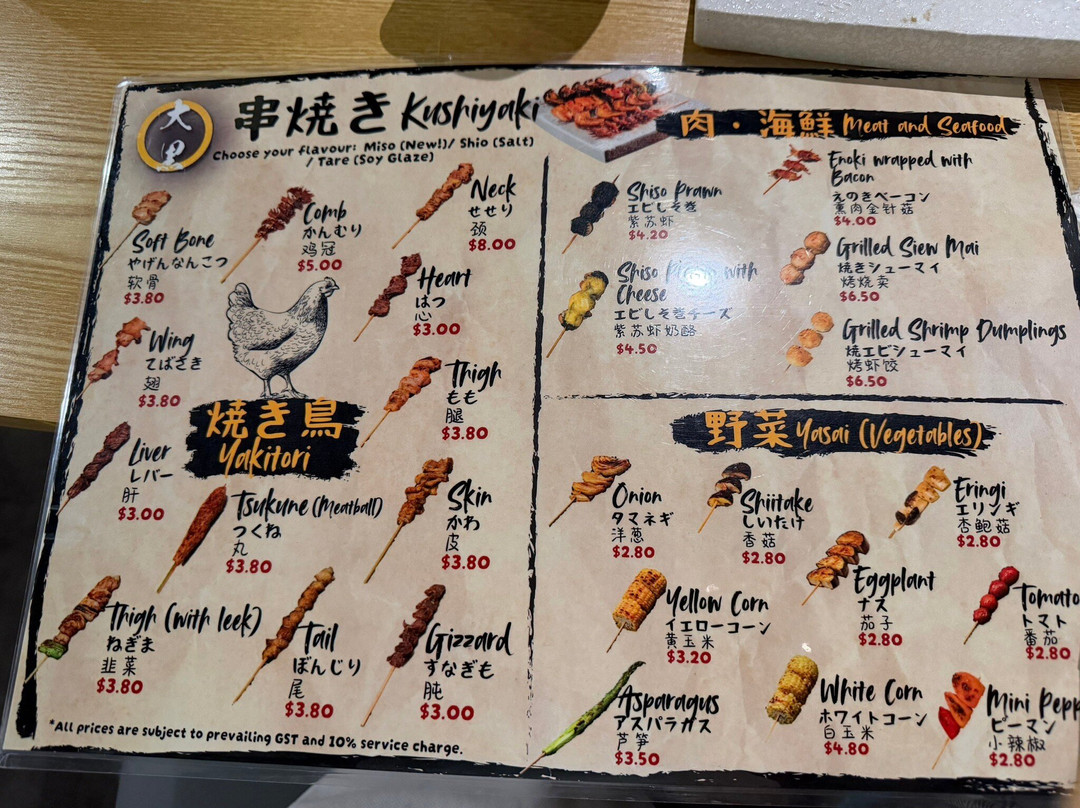 大黒
串焼き Kushiyaki
Choose your flavour: Miso (New!)/ Shio (Salt)
/ Tare (Soy Glaze)
Soft Bone
やげんなんこつ
软骨
$3.80
Comb
かんむり
鸡冠
$5.00
Neck
せせり
颈
$8.00
Heart
はつ
心
$3.00
Wing
てばさき
翅
$3.80
Thigh
もも
腿
$3.80
焼き鳥
Yakitori
Liver
レバー
肝
$3.00
Tsukune (Meatball)
つくね
丸
$3.80
Skin
かわ
皮
$3.80
Thigh (with leek)
ねぎま
韭菜
$3.80
Tail
ぼんじり
尾
$3.80
Gizzard
すなぎも
肫
$3.00
*All prices are subject to prevailing GST and 10% service charge.
肉・海鮮 Meat and Seafood
Shiso Prawn
エビしそ巻
紫苏虾
$4.20
Enoki wrapped with
Bacon
えのきベーコン
熏肉金针菇
$4.00
Shiso Prawn with
Cheese
エビしそ巻チーズ
紫苏虾奶酪
$4.50
Grilled Siew Mai
焼きシューマイ
烤烧卖
$6.50
Grilled Shrimp Dumplings
焼エビシューマイ
烤虾饺
$6.50
野菜 Yasai (Vegetables)
Onion
タマネギ
洋葱
$2.80
Shiitake
しいたけ
香菇
$2.80
Eringi
エリンギ
杏鲍菇
$2.80
Yellow Corn
イエローコーン
黄玉米
$3.20
Eggplant
ナス
茄子
$2.80
Tomato
トマト
番茄
$2.80
Asparagus
アスパラガス
芦笋
$3.50
White Corn
ホワイトコーン
白玉米
$4.80
Mini Pepp
ピーマン
小辣椒
$2.80